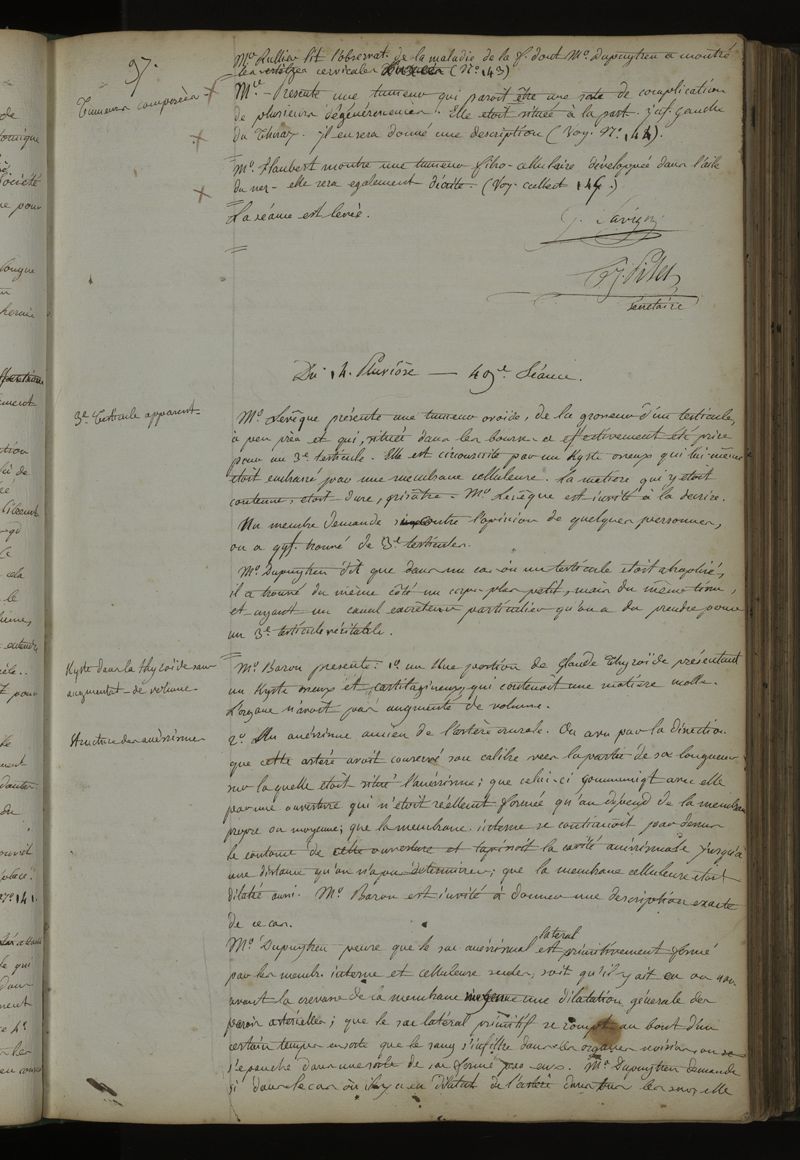 97.
Mr. Rullier lit l'observat. de la maladie de la f. dont Mr. Dupuytren a montré
les vertèbres cervicales (No. 143)
Tumeurs composées
Mr. - Présente une tumeur qui paroit être une sorte de complication
de plusieurs dégénérescences. Elle etoit située à la part. gauche
du Thorax. il en sera donné une description (Voy. No. 144).
Mr. Flaubert montre une tumeur fibro-cellulaire développée dans l'aile
du nez - elle sera egalement décrite. (Voy. cullect 145.)
La séance est levée.
secrétaire
Du 14. Pluviôse — 49e. Séance.
3e. Testicule apparent
Mr. Levêque présente une tumeur ovoide, de la grosseur d'un testicule,
à peu près et qui, située dans les bourses a effectivement été prise
pour un 3e. testicule. Elle est circonscrite par un Kyste osseux qui lui même
étoit embrassé par une membrane celluleuse. La matière qui y etoit
contenue, etoit dure, grisâtre. Mr. Levêque est invité à la décrire.
Un membre demande si contre l'opinion de quelques personnes,
on a qqf. trouvé de 3e. testicules.
Mr. Dupuytren dit que dans un cas où un testicule etoit atrophié,
il a trouvé du même côté un corps plus petit, mais du même tissu,
et ayant un canal excréteur particulier qu'on a du prendre pour
un 3e. testicule véritable.
Kyste dans la thyroïde sans
augmentat. de volume.
Mr. Baron présente: 1o. une portion de Glande Thyroïde présentant
un Kyste osseux et cartilagineux, qui contenoit une matière molle.
L'organe n'avoit pas augmenté de volume.
Structure des anévrismes
2o. Un anévrisme ancien de l'artère crurale. On a vu par la dissection
que cette artère avoit conservé son calibre vers la partie de sa longueur
sur laquelle etoit situé l'anévrisme; que celui-ci communiqt avec elle
par une ouverture qui n'étoit réellement formée qu'au dépend de la membrane
propre ou moyenne; que la membrane interne se continuoit par dessus
le contour de cette ouverture et tapissoit la cavité anévrismale jusqu'à
une distance qu'on n'a pu déterminer; que la membrane celluleuse etoit
dilatée aussi. Mr. Baron est invité à donner une description exacte
de ce cas.
Mr. Dupuytren pense que le sac anévrismal latéral est primitivement formé
par les membr. interne et celluleuse seules, soit qu'il y ait eu ou non
avant la crevasse de la membrane moyenne une dilatation générale des
parois artérielles; que le sac latéral primitif se rompt au bout d'un
certain temps ensorte que le sang s'infiltre dans les organes voisins, ou
s'epanche dans une sorte de sac formé par eux. Mr. Dupuytren demande
si dans le cas où il y a eu dilatat. de l'artère dans tous les sens, elle